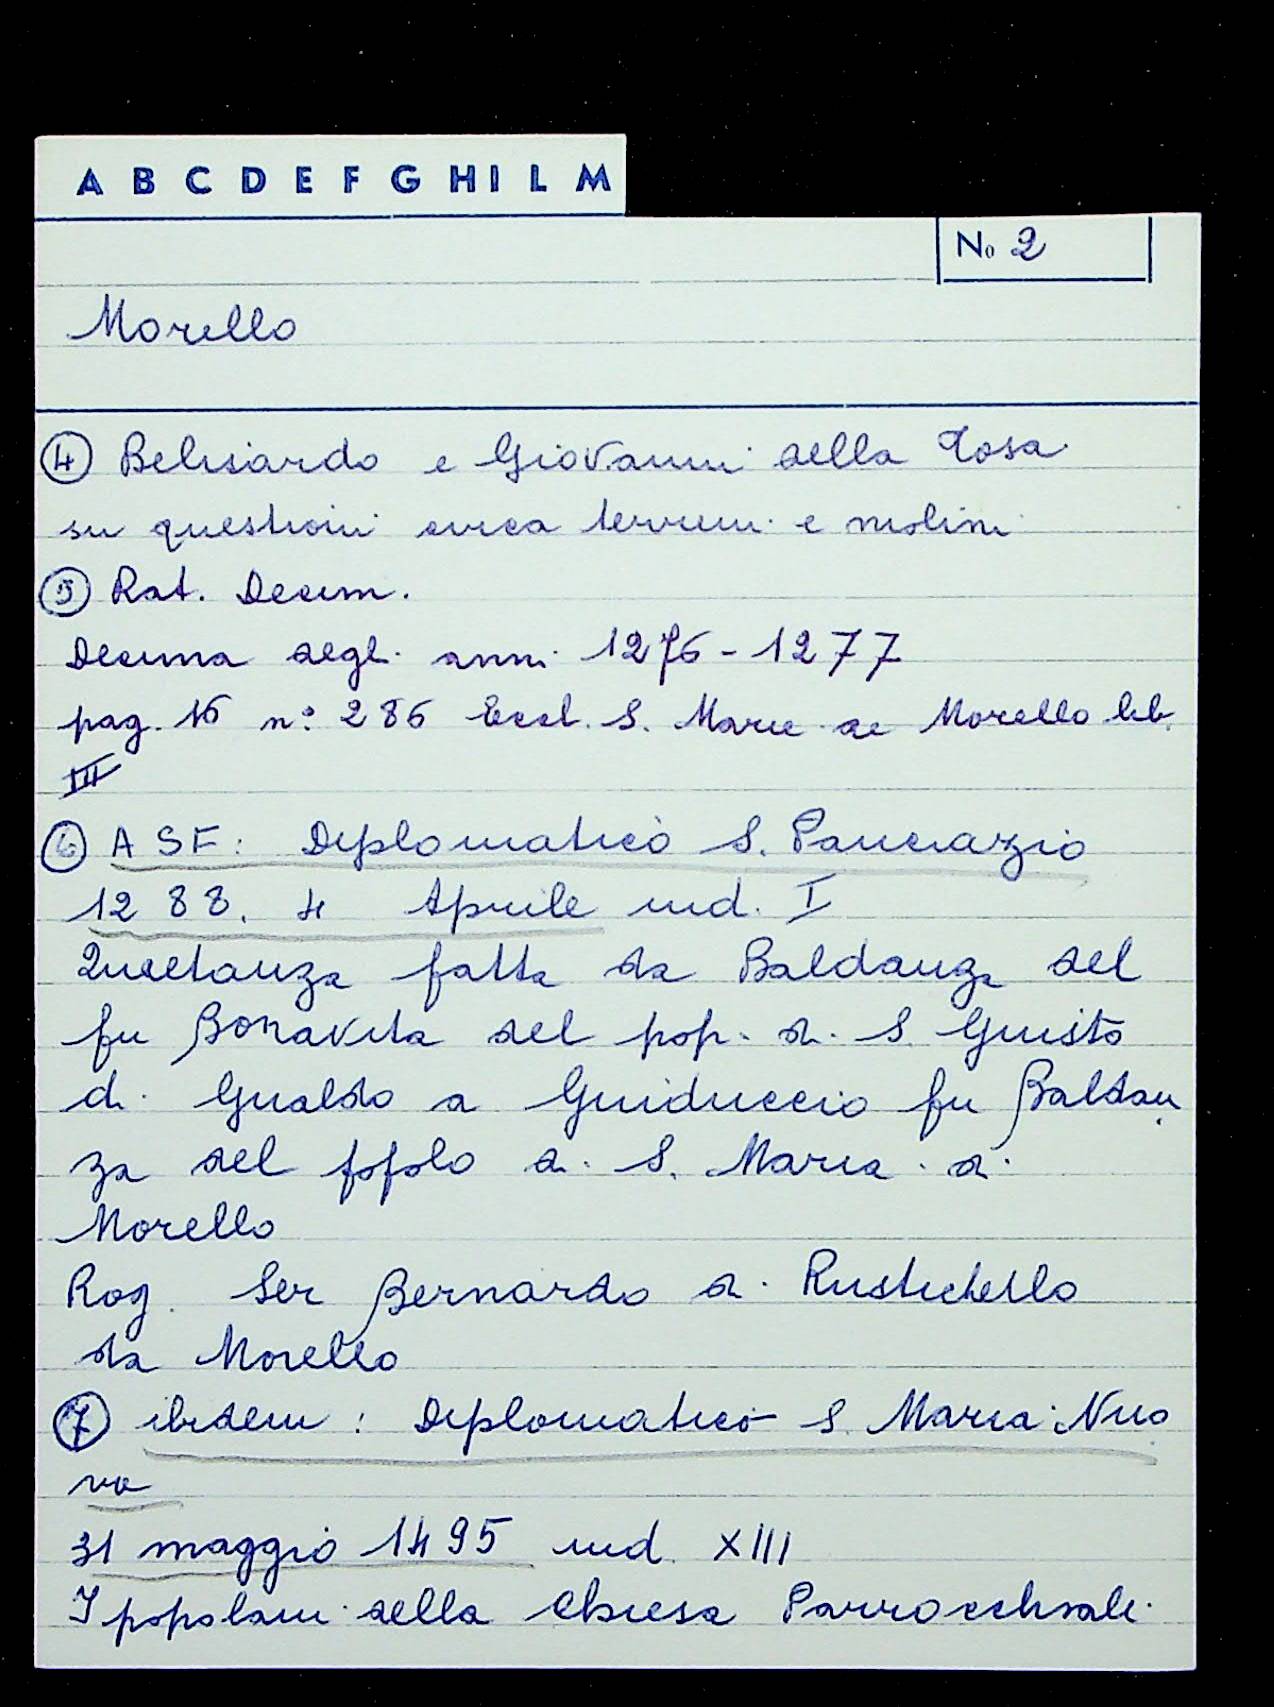 A B C D E F G H I L M
No 2
Morello
4 Belisardo e Giovanni della Tosa
su questioni circa terreni e molini
5 Rat. Decim.
Decima degli anni 1276-1277
pag. 16 n° 286 Eccl. S. Marie de Morello lib.
III
6 ASF: Diplomatico S. Pancrazio
1288. 4 Aprile ind. I
Quietanza fatta da Baldanza del
fu Bonavita del pop. di S. Giusto
di Gualdo a Guiduccio fu Baldan
za del popolo di S. Maria di
Morello
Rog. Ser Bernardo di Rustichello
da Morello
7 ibidem: Diplomatico S. Maria Nuo
va
31 maggio 1495 ind. XIII
I popolani della Chiesa Parrocchiale